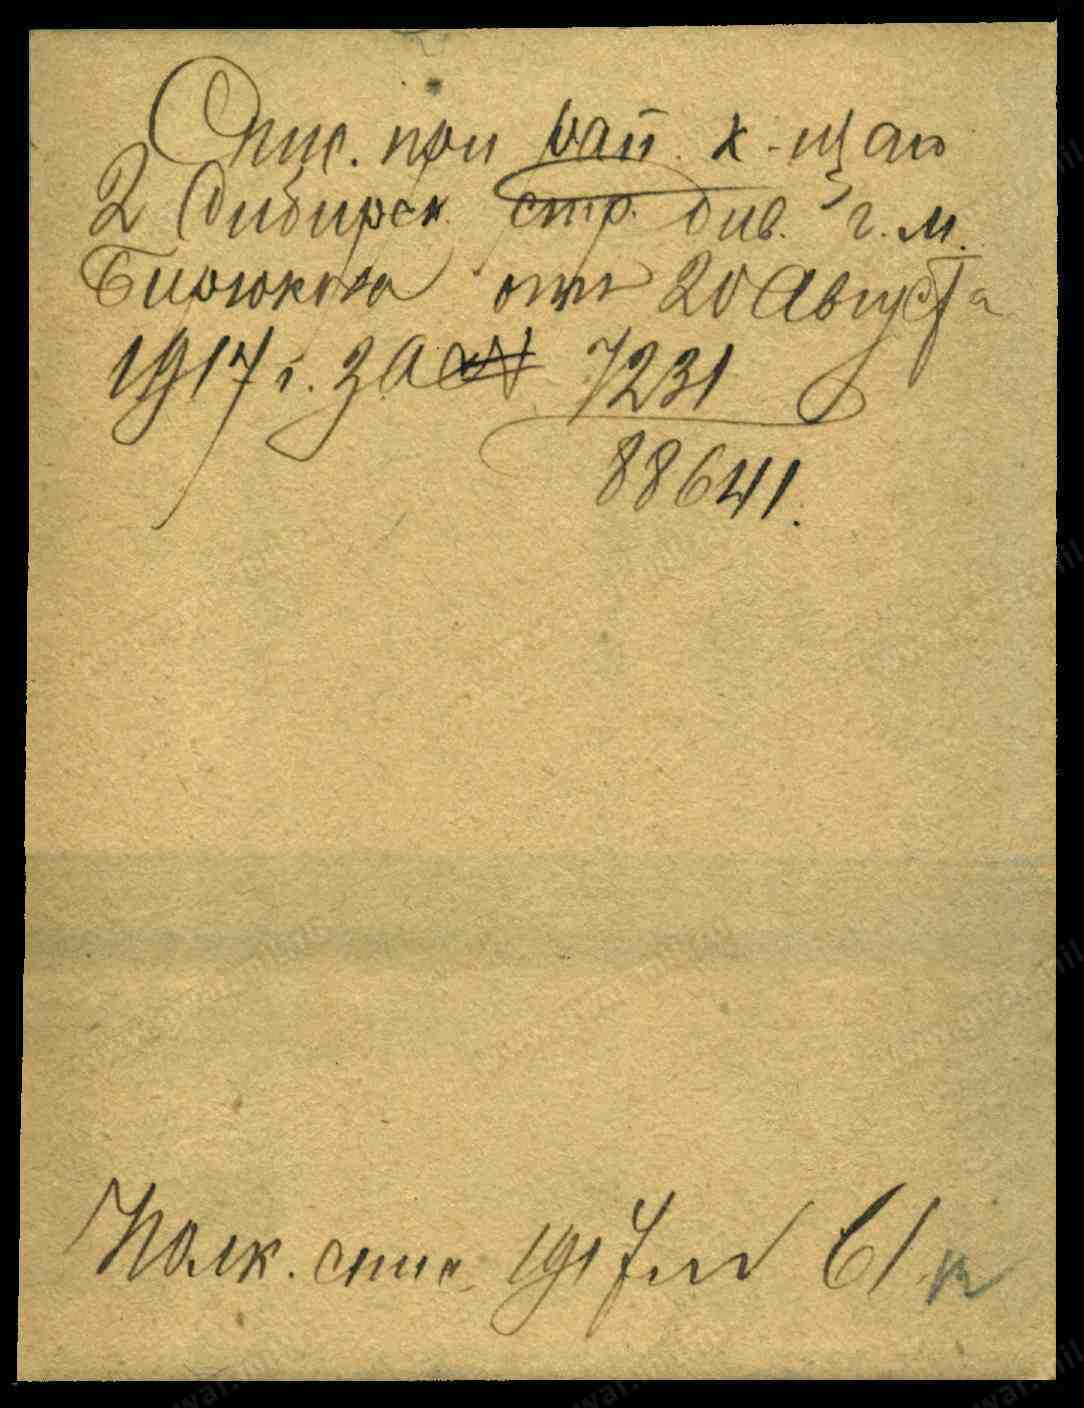 Спис. при рап. к-щаго
2 Сибирск. стр. див. г. м.
Бирюкова отъ 20 Августа
1917 г. за № 7231
88641.
Полк. спис. 1917 г. № 61